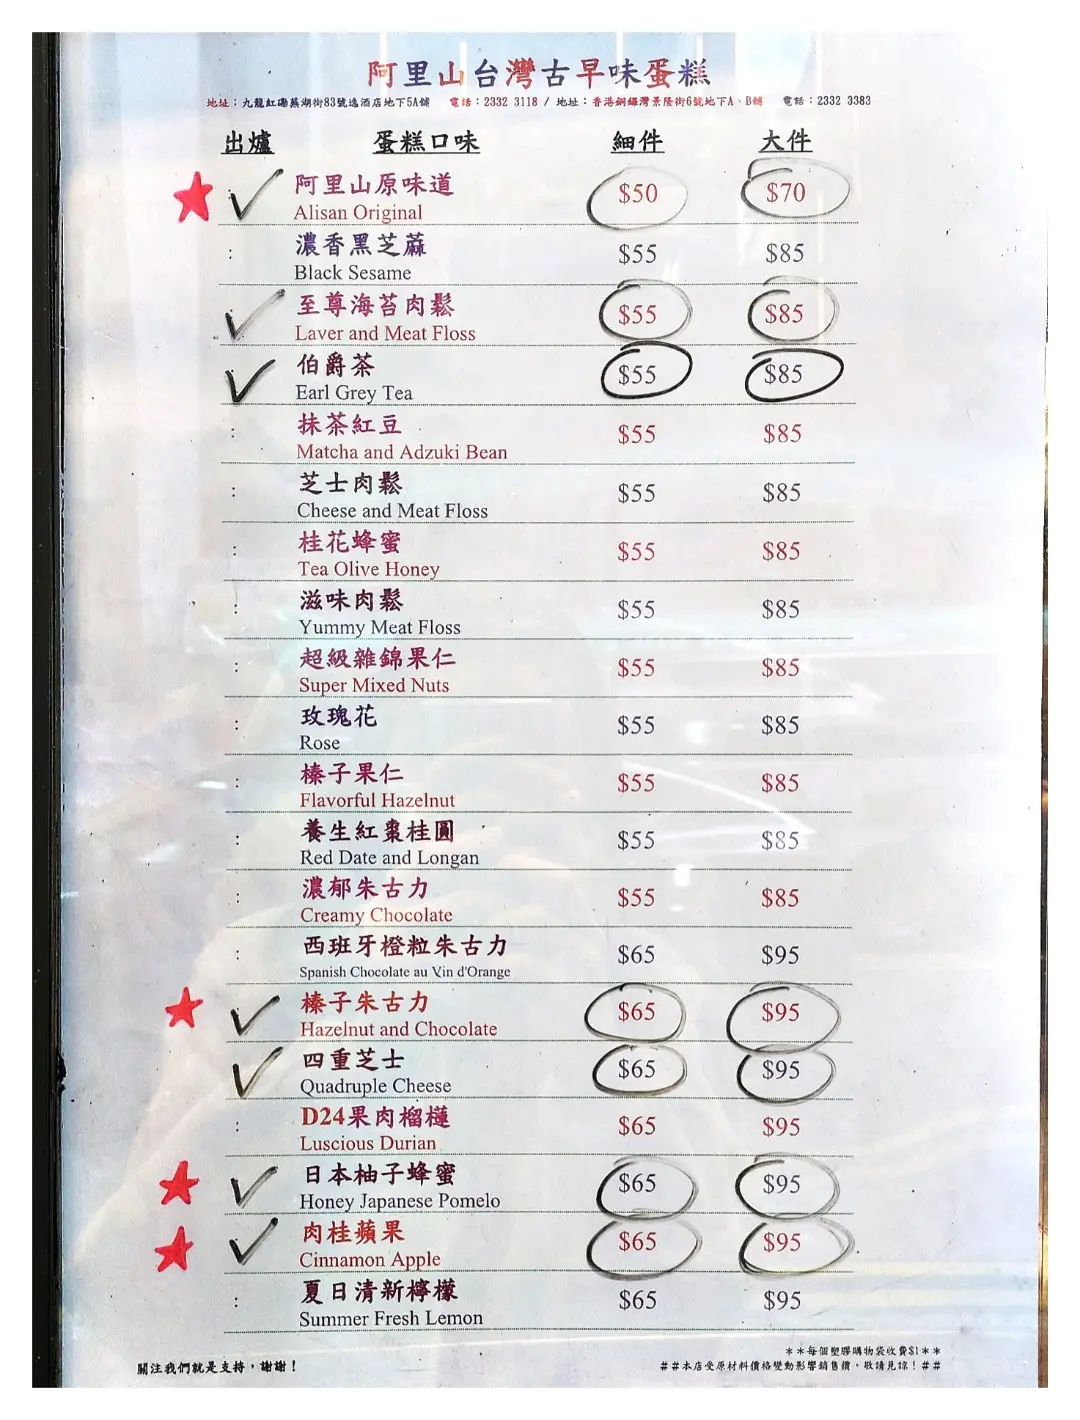 阿里山台灣古早味蛋糕
地址：九龍紅磡蕪湖街83號逸酒店地下5A舖 電話：2332 3118 / 地址：香港銅鑼灣景隆街6號地下A、B舖 電話：2332 3383
出爐 蛋糕口味 細件 大件
阿里山原味道 $50 $70
Alisan Original
濃香黑芝蔴 $55 $85
Black Sesame
至尊海苔肉鬆 $55 $85
Laver and Meat Floss
伯爵茶 $55 $85
Earl Grey Tea
抹茶紅豆 $55 $85
Matcha and Adzuki Bean
芝士肉鬆 $55 $85
Cheese and Meat Floss
桂花蜂蜜 $55 $85
Tea Olive Honey
滋味肉鬆 $55 $85
Yummy Meat Floss
超級雜錦果仁 $55 $85
Super Mixed Nuts
玫瑰花 $55 $85
Rose
榛子果仁 $55 $85
Flavorful Hazelnut
養生紅棗桂圓 $55 $85
Red Date and Longan
濃郁朱古力 $55 $85
Creamy Chocolate
西班牙橙粒朱古力 $65 $95
Spanish Chocolate au Vin d'Orange
榛子朱古力 $65 $95
Hazelnut and Chocolate
四重芝士 $65 $95
Quadruple Cheese
D24果肉榴槤 $65 $95
Luscious Durian
日本柚子蜂蜜 $65 $95
Honey Japanese Pomelo
肉桂蘋果 $65 $95
Cinnamon Apple
夏日清新檸檬 $65 $95
Summer Fresh Lemon
**每個塑膠購物袋收費$1**
關注我們就是支持，謝謝！ ##本店受原材料價格變動影響銷售價，敬請見諒！##